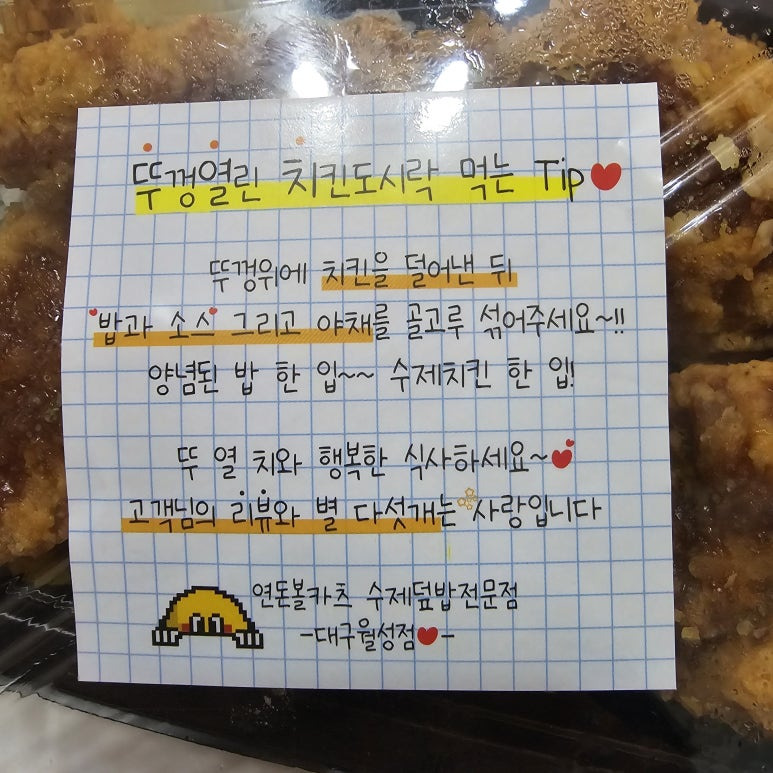 뚜껑열린 치킨도시락 먹는 Tip♥
뚜껑위에 치킨을 덜어낸 뒤
밥과 소스 그리고 야채를 골고루 섞어주세요~!!
양념된 밥 한 입~~ 수제치킨 한 입!
뚜 열 치와 행복한 식사하세요~♥
고객님의 리뷰와 별 다섯개는 사랑입니다
연돈볼카츠 수제덮밥전문점
-대구월성점♥-